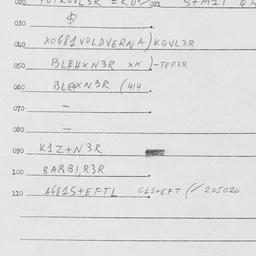 030 $
040 XO681VOLDVERNA) KOVL3R
050 BLEHXN3R XX)-TEP3R
060 BLEXN3R (414
070 —
080 —
090 K1Z+N3R
100 BARBI,R3R
110 AG81S+EFTL G1S+EFT (/205020